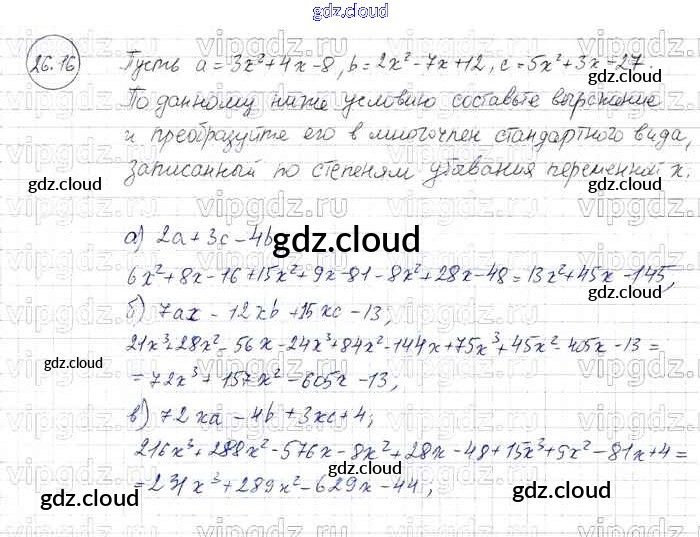 gdz.cloud
26.16 Пусть a = 3x² + 4x - 8, b = 2x² - 7x + 12, c = 5x² + 3x - 27.
По данному ниже условию составьте выражение
и преобразуйте его в многочлен стандартного вида,
записанный по степеням убывания переменной x.
gdz.cloud gdz.cloud
а) 2a + 3c - 4b
gdz.cloud
6x² + 8x - 16 + 15x² + 9x - 81 - 8x² + 28x - 48 = 13x² + 45x - 145;
б) 7ax - 12xb + 15xc - 13;
21x³ + 28x² - 56x - 24x³ + 84x² - 144x + 75x³ + 45x² - 405x - 13 =
gdz.cloud gdz.cloud
= 72x³ + 157x² - 605x - 13;
в) 72xa - 4b + 3xc + 4;
216x³ + 288x² - 576x - 8x² + 28x - 48 + 15x³ + 9x² - 81x + 4 =
= 231x³ + 289x² - 629x - 44;
gdz.cloud gdz.cloud gdz.cloud